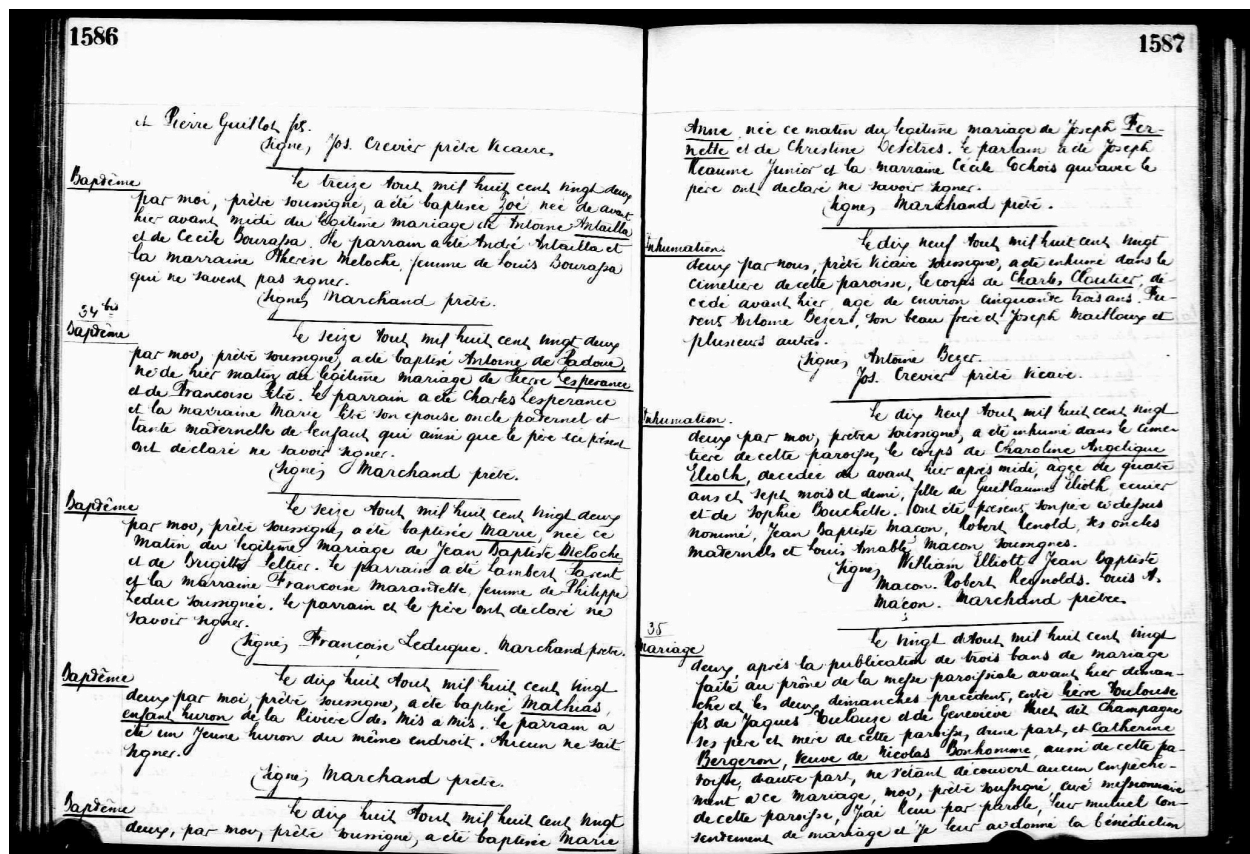 1586
et Pierre Guillot fils.
(Signé) Jos. Crevier prêtre Vicaire
Baptême
Le treize Aout mil huit cent vingt deux
par moi, prêtre soussigné, a été baptisée Zoé née de avant
hier avant midi du légitime mariage de Antoine Antailla
et de Cecile Bourassa. Le parrain a été André Antailla et
la marraine Thérèse Meloche, femme de Louis Bourassa
qui ne savent pas signer.
(Signé) Marchand prêtre.
34 bis
Baptême
Le seize Aout mil huit cent vingt deux
par moi, prêtre soussigné, a été baptisé Antoine de Padoue,
né de hier matin du légitime mariage de Pierre Lesperance
et de Françoise Petré. Le parrain a été Charles Lesperance
et la marraine Marie Petré son epouse oncle paternel et
tante maternelle de l'enfant qui ainsi que le père ici présent
ont déclaré ne savoir signer.
(Signé) Marchand prêtre.
Baptême
Le seize Aout mil huit cent vingt deux
par moi, prêtre soussigné, a été baptisée Marie, née ce
matin du légitime mariage de Jean Baptiste Meloche
et de Brigitte Peltier. Le parrain a été Lambert Parent
et la marraine Françoise Marantette, femme de Philippe
Leduc soussignée. Le parrain et le père ont déclaré ne
savoir signer.
(Signé) Françoise Leduque. Marchand prêtre.
Baptême
Le dix huit Aout mil huit cent vingt
deux par moi, prêtre soussigné, a été baptisé Mathias,
enfant huron de la Rivière des Mis à Mis. Le parrain a
été un Jeune huron du même endroit. Aucun ne sait
signer.
(Signé) Marchand prêtre.
Baptême
Le dix huit Aout mil huit cent vingt
deux, par moi, prêtre soussigné, a été baptisée Marie
1587
Anne née ce matin du légitime mariage de Joseph Per-
nette et de Christine Desêtres. Le parrain a été Joseph
Reaume Junior et la marraine Cécile Cochois qui avec le
père ont déclaré ne savoir signer.
(Signé) Marchand prêtre.
Inhumation.
Le dix neuf Aout mil huit cent vingt
deux par nous, prêtre Vicaire soussigné, a été inhumé dans le
cimetière de cette paroisse, le corps de Charles Cloutier, dé
cédé avant hier, agé de environ cinquante trois ans. Fu-
rent Antoine Bezer, son beau frère et Joseph Mailloux et
plusieurs autres.
(Signé) Antoine Bezer.
Jos. Crevier prêtre Vicaire.
Inhumation.
Le dix neuf Aout mil huit cent vingt
deux par moi, prêtre soussigné, a été inhumé dans le cime-
tière de cette paroisse, le corps de Charoline Angelique
Elioth, decedée de avant hier après midi, agée de quatre
ans et sept mois et demi, fille de Guillaume Elioth, ecuier
et de Sophie Bouchette. Ont été présent son père ci dessus
nommé, Jean Baptiste Macon, Robert Renold, ses oncles
maternels et Louis Amable Macon soussignés.
(Signé) William Elliott. Jean Baptiste
Macon. Robert Reynolds. Louis A.
Macon. Marchand prêtre
35
Mariage
Le vingt d'Aout mil huit cent vingt
deux, après la publication de trois bans de mariage
faite au prône de la messe paroissiale avant hier diman-
che et les deux dimanches précédent, entre Pierre Toulouse
fils de Jaques Toulouze et de Geneviève Huret dit Champagne
ses père et mère de cette paroisse, d'une part, et Catherine
Bergeron, veuve de Nicolas Bonhomme, aussi de cette pa-
roisse, d'autre part, ne s'étant découvert aucun empêche-
ment à ce mariage, moi, prêtre soussigné, curé missionnaire
de cette paroisse, J'ai reçu par parole, leur mutuel con-
sentement de mariage et Je leur ai donné la bénédiction